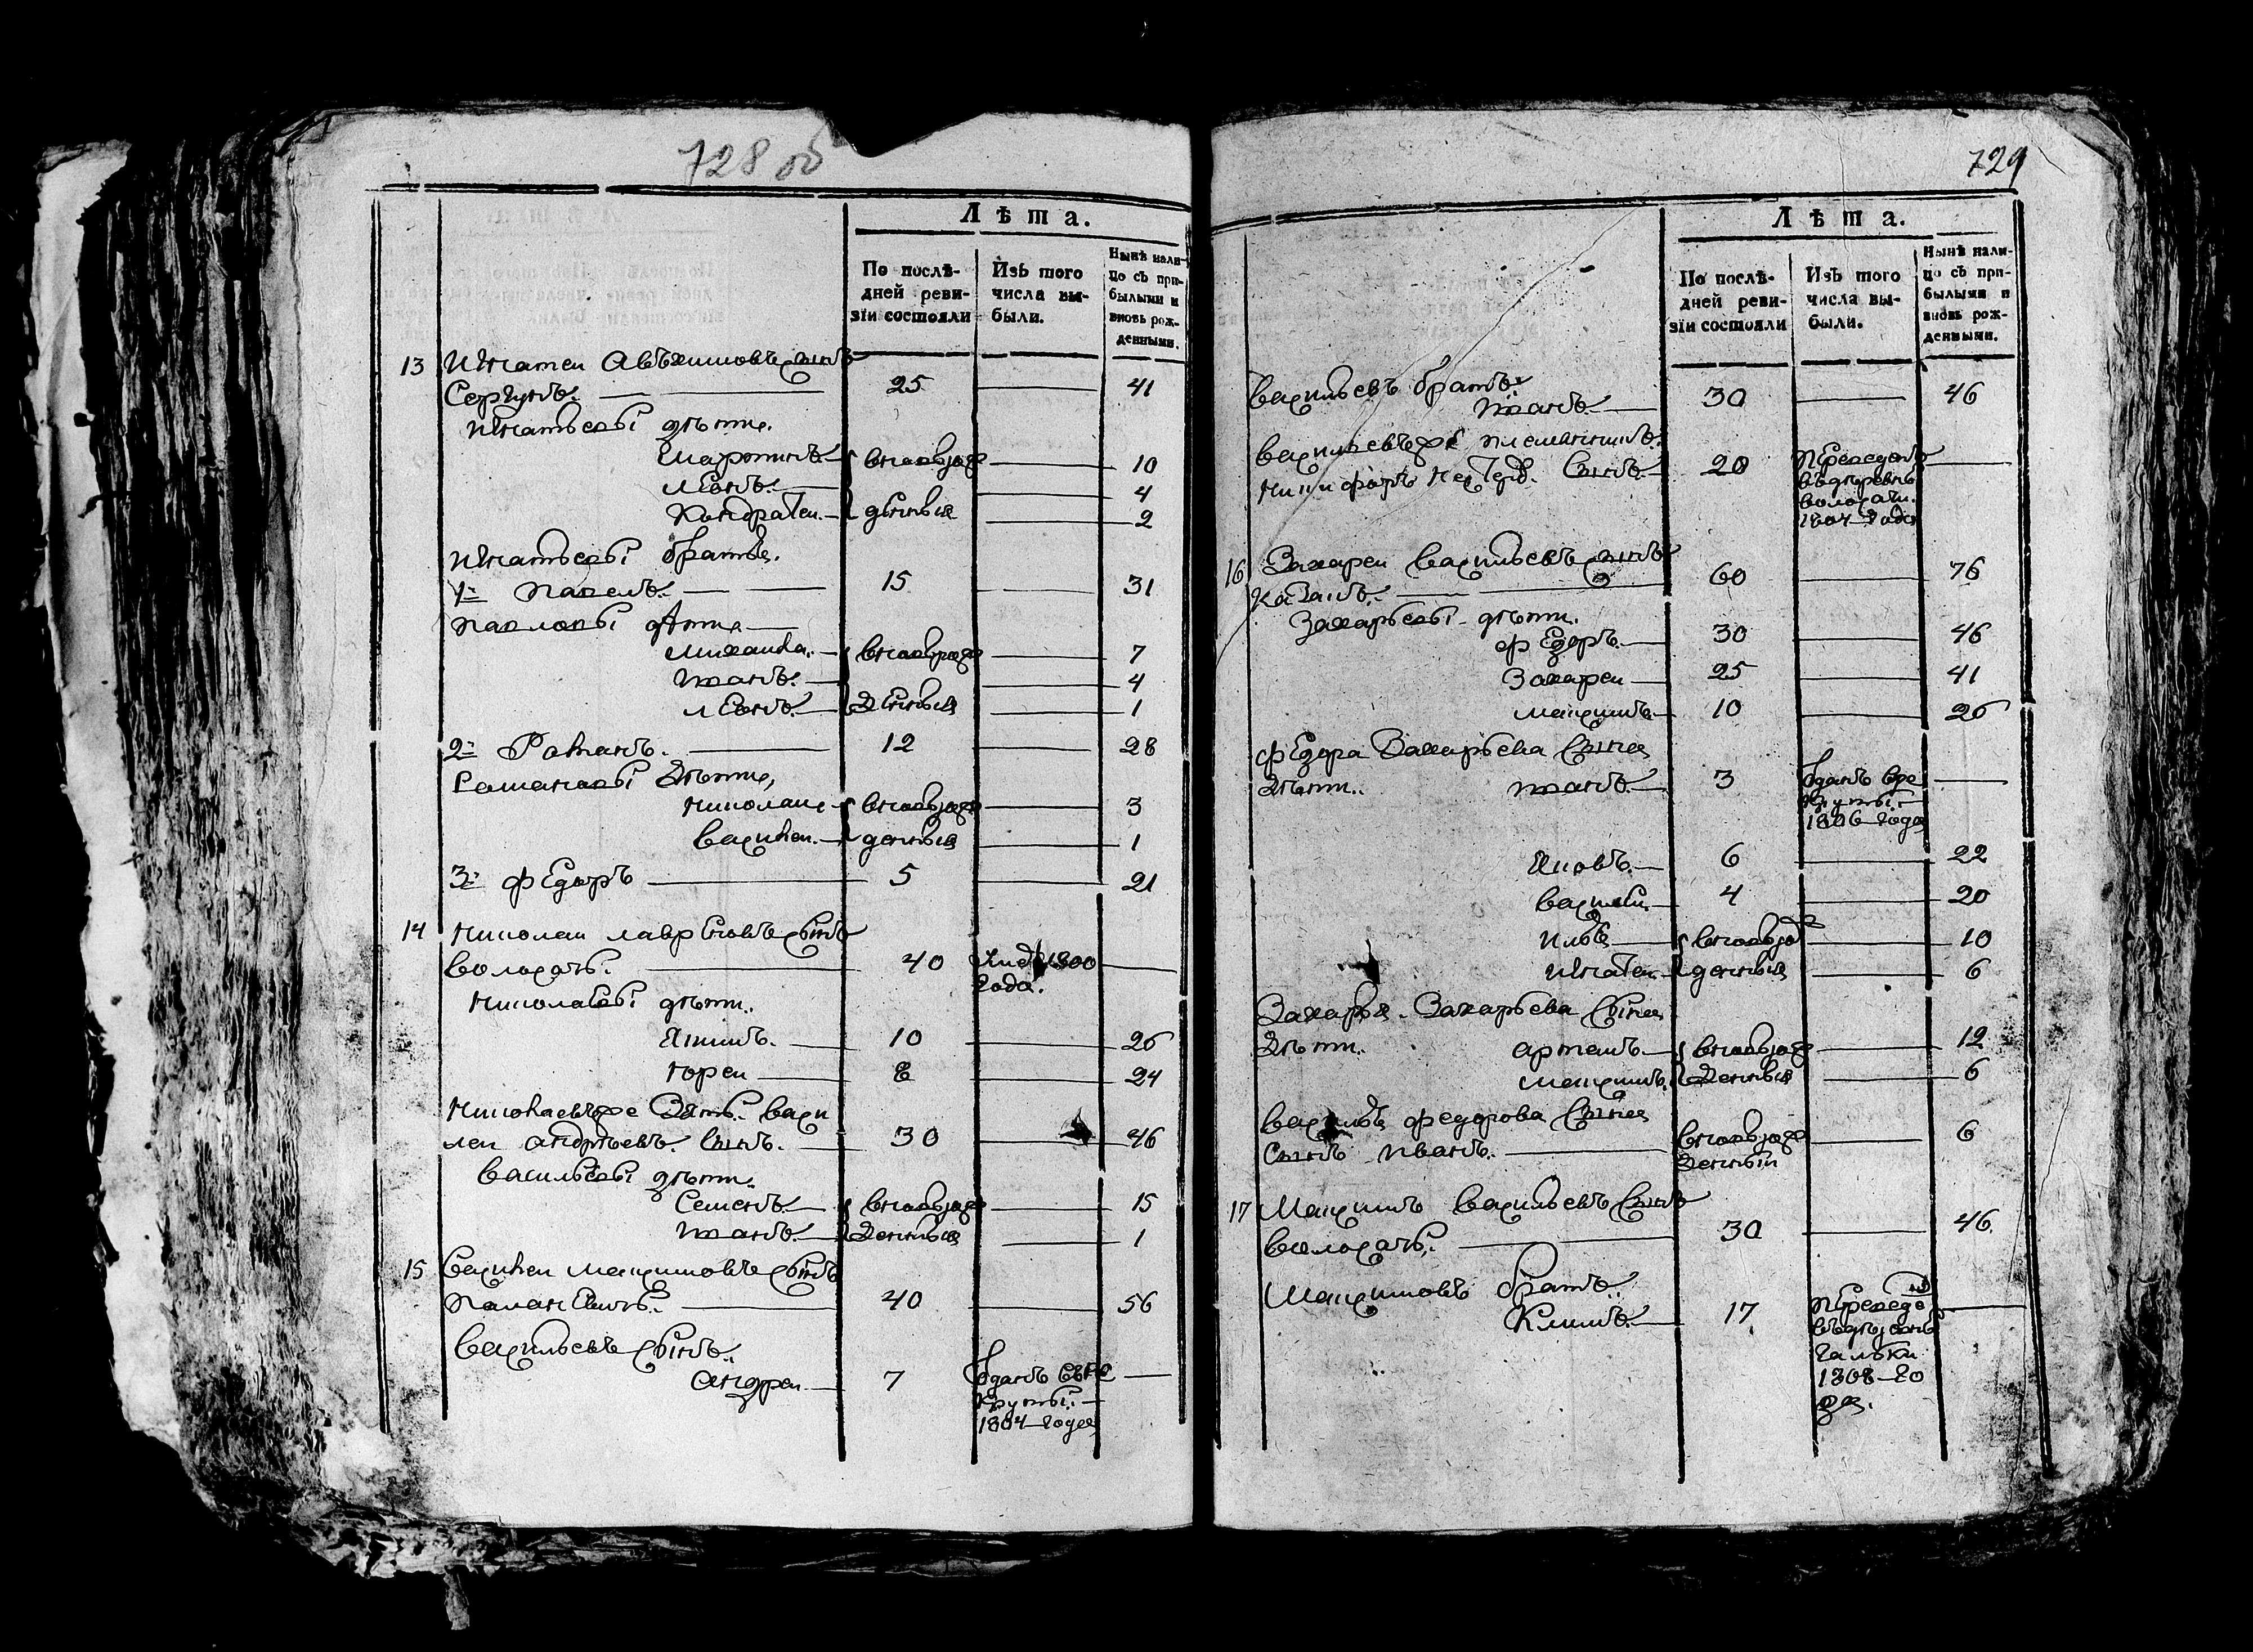 728 об
Лѣта.
По послѣдней ревизіи состояли
Изъ того числа выбыли.
Нынѣ налицо съ прибылыми и вновь рожденными.
13 Игнатеи Авхимовъ сынъ
Сергунъ. 25 — 41
Игнатьевы дѣти.
Мартинъ вновьрож — 10
Леонъ. — 4
Кондратеи. денныя — 2
Игнатьевы братья.
1й Павелъ. 15 — 31
Павловы дѣти
Михаила. вновьрож — 7
Иванъ. — 4
Леонъ. денныя — 1
2й Романъ. 12 — 28
Романовы дѣти,
Николаи вновьрож — 3
Василеи. денныя — 1
3й Федоръ 5 — 21
14 Николаи Лавреновъ сынъ
Волосачъ. 40 1800 года. —
Николаевы дѣти.
Якимъ. 10 — 26
Юреи 8 — 24
Николаевъже зять. Васи
леи Андрѣевъ. сынъ. 30 — 46
Васильевы дѣти.
Семенъ. вновьрож — 15
Иванъ. денныя — 1
15 Василеи Максимовъ сынъ
40 — 56
Васильевъ сынъ.
Андреи 7 Отданъ врекруты. 1804 года —
729
Лѣта.
По послѣдней ревизіи состояли
Изъ того числа выбыли.
Нынѣ налицо съ прибылыми и вновь рожденными.
Васильевъ братъ.
Иванъ. 30 — 46
Васильевъже племянникъ.
Никифоръ Нестеров. сынъ. 20 въдеревню 1804 года —
16 Захареи Васильевъ сынъ
Казакъ. 60 — 76
Захарьевы дѣти.
Федоръ. 30 — 46
Захареи 25 — 41
Максимъ. 10 — 26
Федора Захарьева сына
дѣти. Иванъ. 3 Отданъ врекруты. 1806 года —
Яковъ. 6 — 22
Василеи. 4 — 20
Илья вновьрож — 10
Игнатеи. денныя — 6
Захарья Захарьева сына
дѣти. Артемъ вновьрож — 12
Максимъ. денныя — 6
Василья Федорова сына
сынъ Иванъ. вновьрожденный — 6
17 Максимъ Васильевъ сынъ
Волосачъ. 30 — 46
Максимовъ братъ.
Климъ. 17 въдѣревню Гальки 1808 года. —